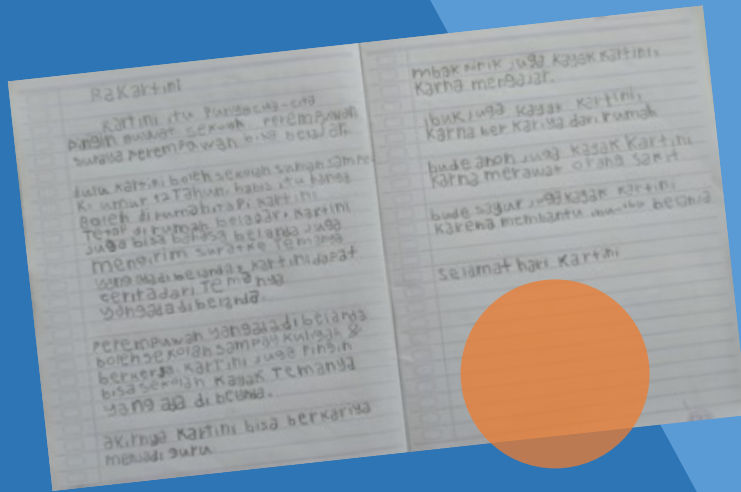 RaKartini
Kartini itu Punya cita-cita
pingin muwat sekolah perempuwan
supaya perempuwan bisa belajar.
dulu Kartini boleh sekolah sampe
Ke umur 12 Tahun, habis itu
Boleh dirumah, tapi Kartini
Tetap dirumah belajar. Kartini
Juga bisa bahasa belanda, Juga
mengirim surat ke Temanya
yang ada di belanda, Kartini dapat
cerita dari Temanya
yang ada di belanda.
perempuwan yang ada di belanda
boleh sekolah sampay kuliyah &
berkerja. Kartini Juga Pingin
bisa sekolah Kayak Temanya
yang ada di belanda.
akirnya Kartini bisa berkariya
menjadi guru
mbak ririk Juga Kayak Kartini,
Karna mengajar.
ibuk Juga Kayak Kartini,
Karna berkariya dari rumah
bude Juga Kayak Kartini
Karna merawat orang sakit
bude sayur Juga Kayak Kartini
Karena membantu belanja
selamat hari Kartini